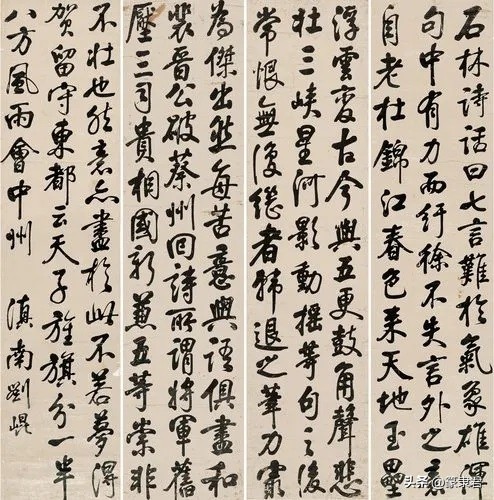 石林詩話曰七言難於氣象雄渾
句中有力而紆徐不失言外之意
自老杜錦江春色来天地玉壘
浮雲變古今與五更鼓角聲悲
壮三峽星河影動摇等句之後
常恨無復继者韩退之筆力㝡
為傑出然每苦意與語俱盡和
裴晉公破蔡州回詩所謂將軍舊
壓三司貴相國新兼五等崇非
不壮也然意亦盡於此不若夢得
賀留守東都云天子旌旗分一半
八方風雨會中州 滇南劉崐
头条 @